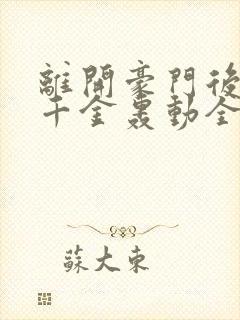 離開豪門後
千金轟動全
蘇大東